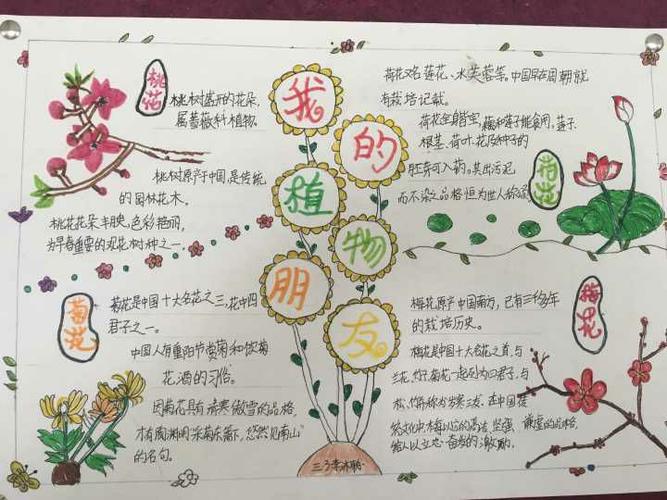 我的植物朋友
桃花
桃树盛开的花朵,
属蔷薇科植物.
桃树原产中国,是传统
的园林花木。
桃花花朵丰腴,色彩艳丽,
为早春重要的观花树种之一.
荷花
荷花又名莲花、水芙蓉等。中国早在周朝就
有栽培记载.
荷花全身皆宝,藕和莲子能食用,莲子、
根茎、荷叶、花及种子的
胚芽可入药。其出污泥
而不染之品格恒为世人称颂
菊花
菊花是中国十大名花之三,花中四
君子之一。
中国人有重阳节赏菊和饮菊
花酒的习俗。
因菊花具有清寒傲雪的品格,
才有陶渊明"采菊东篱下,悠然见南山"
的名句。
梅花
梅花原产中国南方,已有三千多年
的栽培历史。
梅花是中国十大名花之首,与
兰花、竹子、菊花一起列为四君子,与
松、竹并称为岁寒三友。在中国传
统文化中,梅以它的高洁、坚强、谦虚的品格,
给人以立志奋发的激励。
三3李